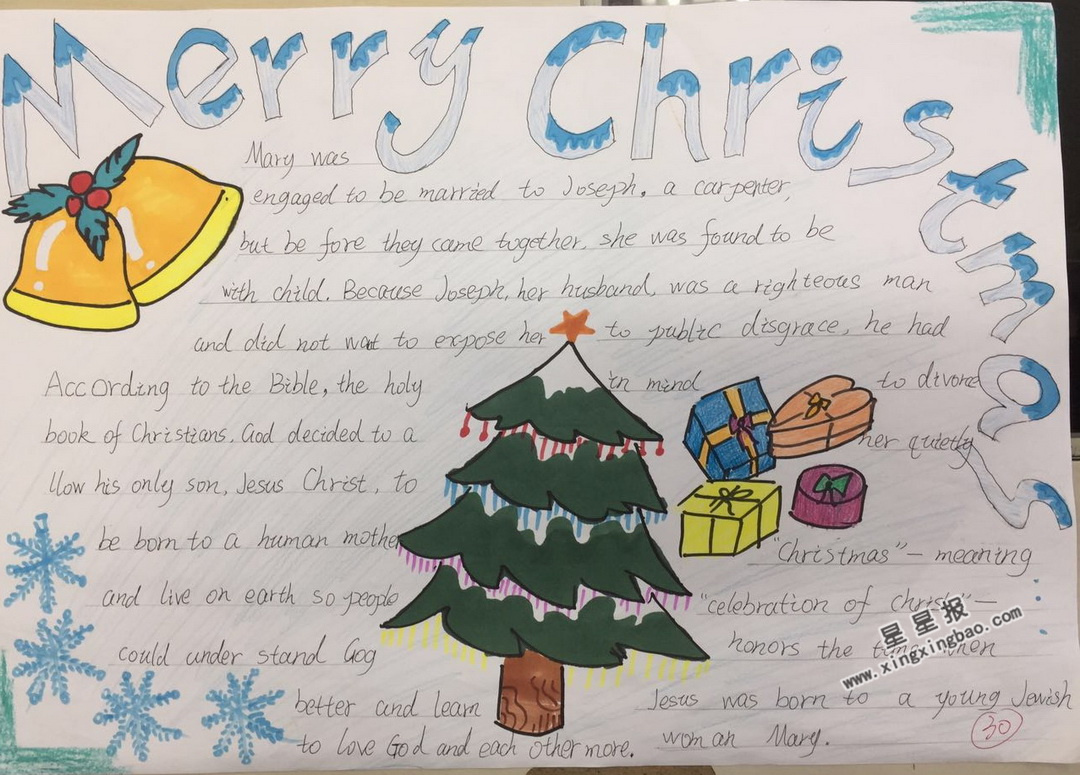 Merry Christmas
Mary was
engaged to be married to Joseph. a carpenter,
but be fore they came together, she was found to be
with child. Because Joseph, her husband, was a righteous man
and did not want to expose her to public disgrace, he had
in mind to divorce
her quietly
According to the Bible, the holy
book of Christians, God decided to a
llow his only son, Jesus Christ, to
be born to a human mother
and live on earth so people
could under stand Gog
better and learn
to love God and each other more.
"Christmas" – meaning
"celebration of Christ" –
honors the time when
Jesus was born to a young Jewish
woman Mary.
30
星星报
www.xingxingbao.com